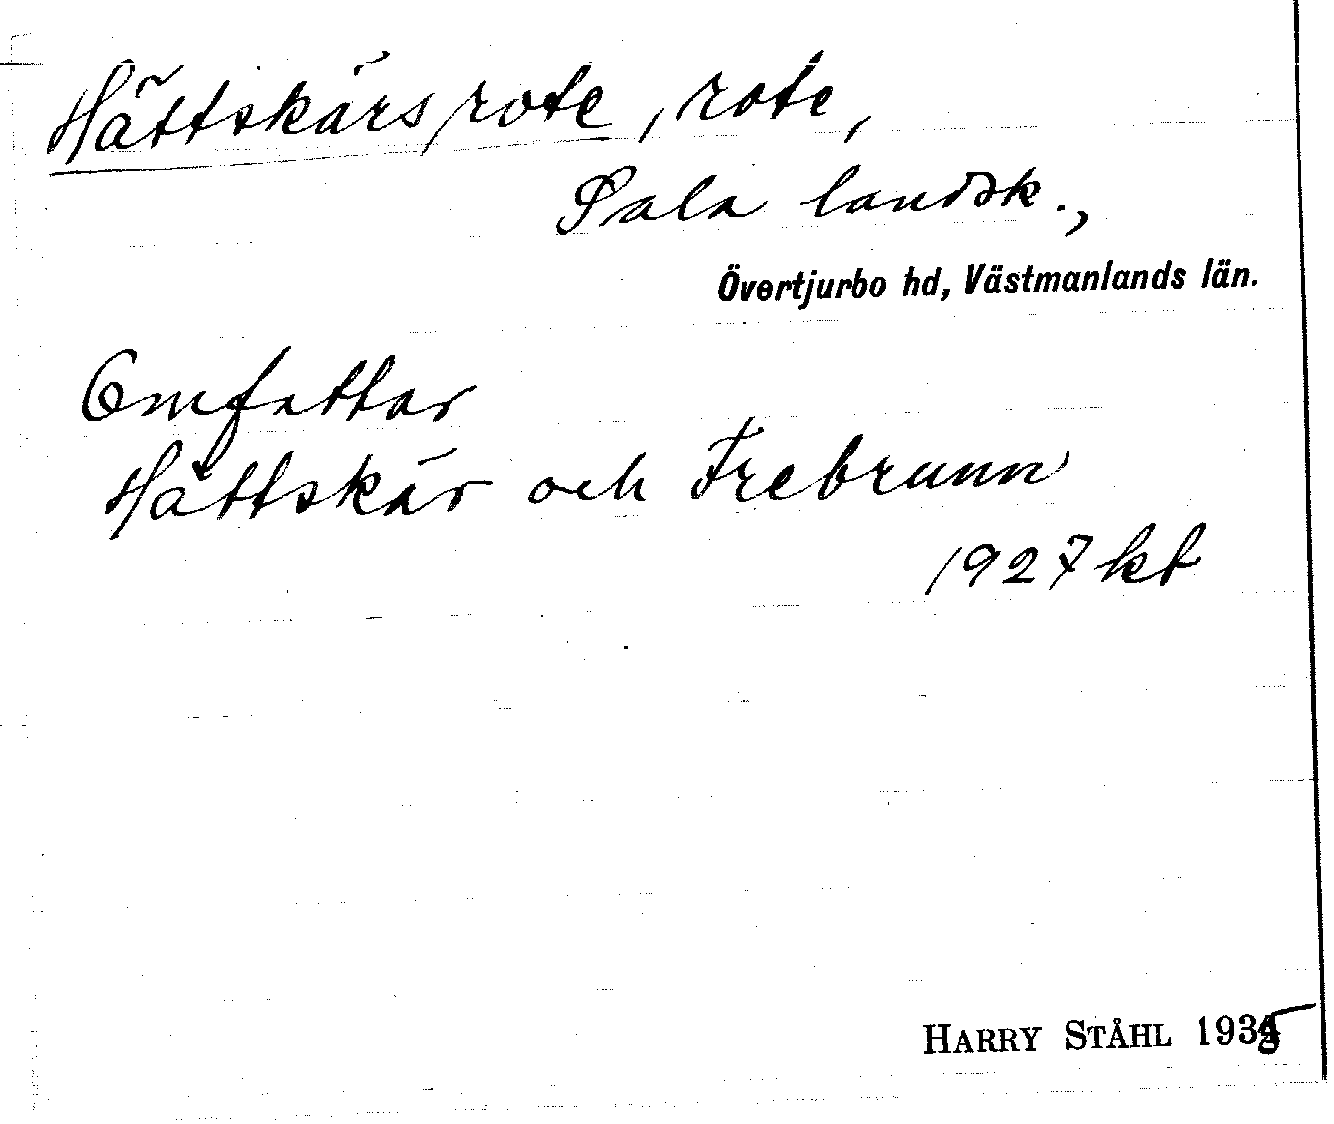 Hättskärsrote, rote,
Sala landsk.,
Övertjurbo hd, Västmanlands län.
Omfattar
Hättskär och Frebrunn
1927 kt
HARRY STÅHL 1935